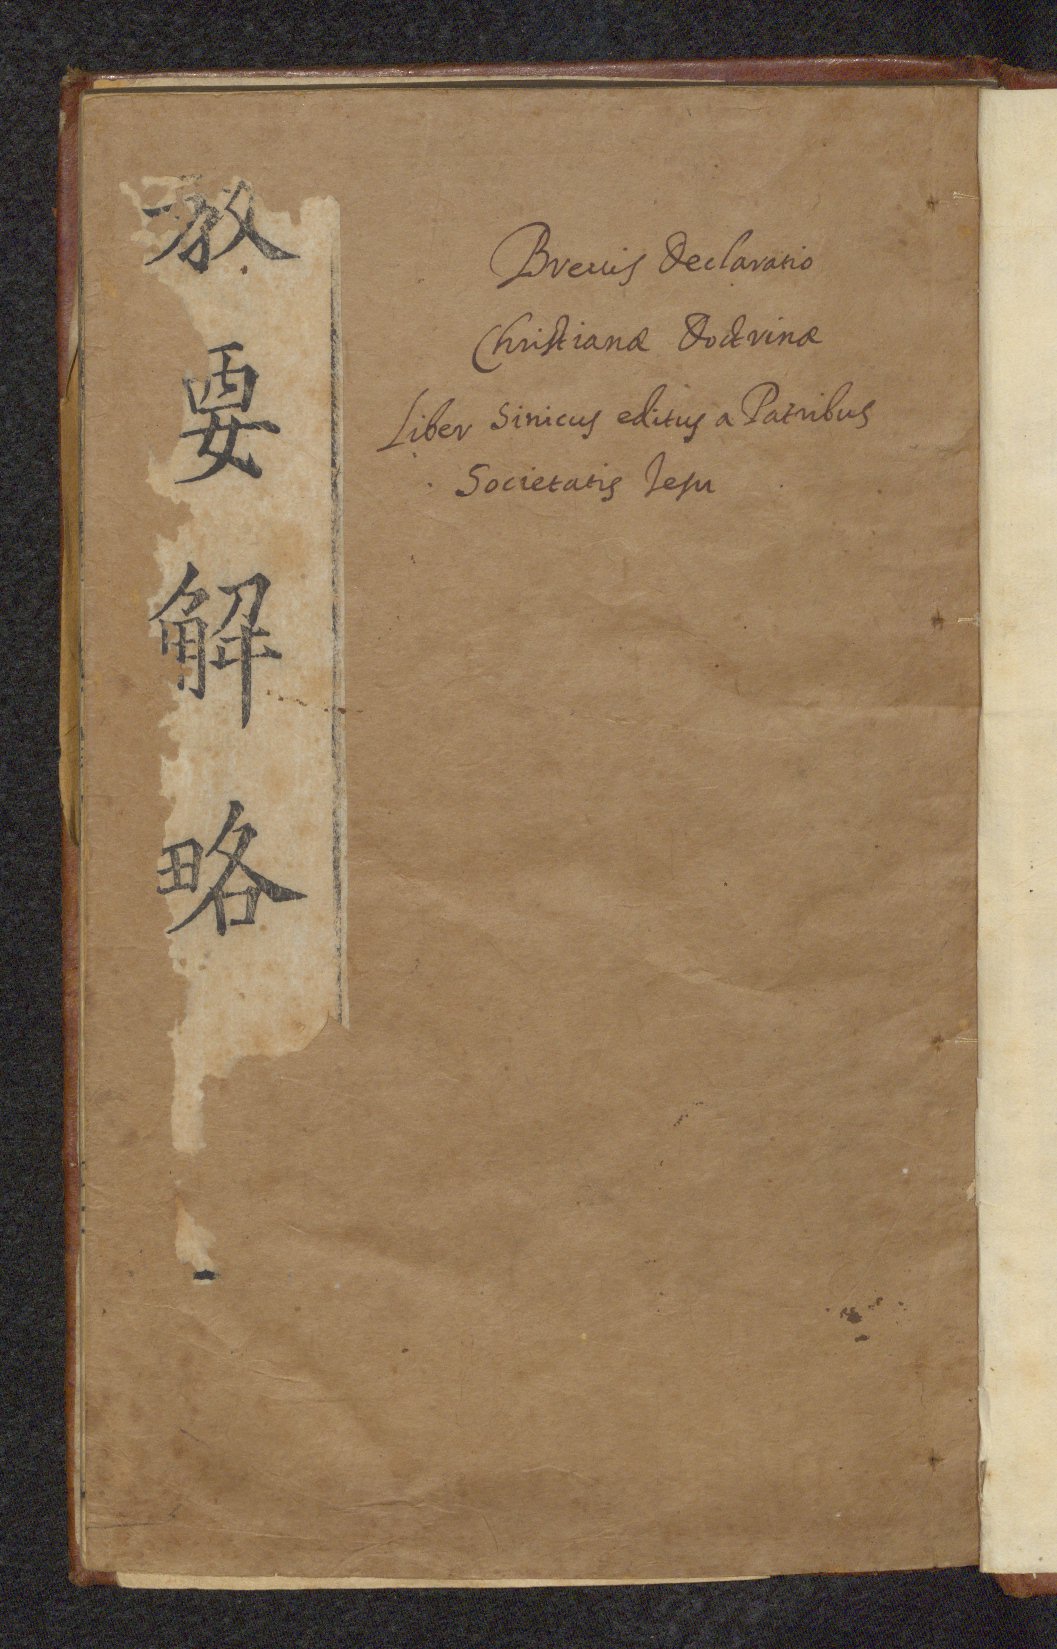 教要解略
Brevis declaratio
Christianæ doctrinæ
Liber Sinicus editus a Patribus
Societatis Jesu